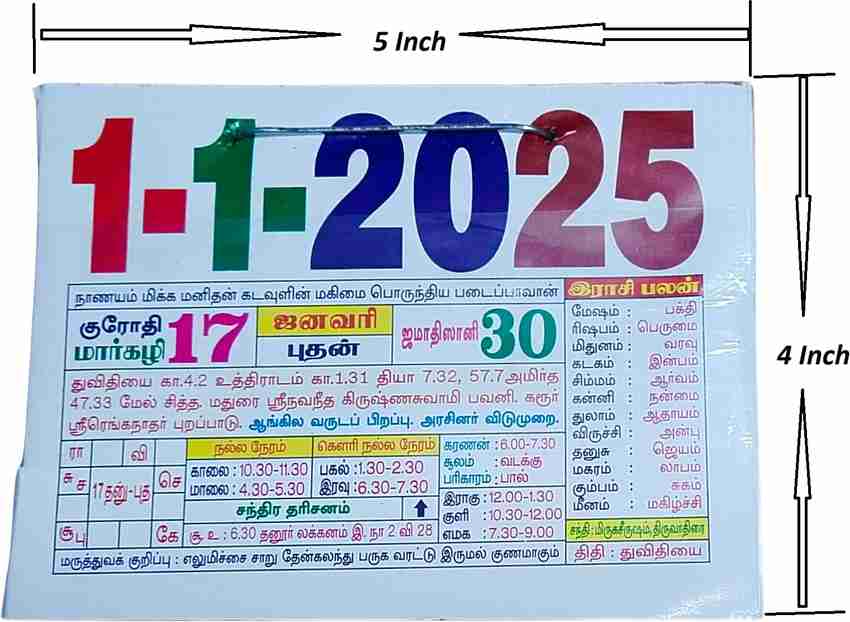 5 Inch
4 Inch
1-1-2025
நாணயம் மிக்க மனிதன் கடவுளின் மகிமை பொருந்திய படைப்பாவான்
குரோதி
மார்கழி 17
ஜனவரி
புதன்
ஜமாதிஸானி 30
துவிதியை கா.4.2 உத்திராடம் கா.1.31 தியா 7.32, 57.7அமிர்த
47.33 மேல் சித்த. மதுரை ஸ்ரீநவநீத கிருஷ்ணசுவாமி பவனி. கரூர்
ஸ்ரீரெங்கநாதர் புறப்பாடு. ஆங்கில வருடப் பிறப்பு. அரசினர் விடுமுறை.
ரா வி
சு ச 17தனு-புத செ
சூ பு கே
நல்ல நேரம்
காலை : 10.30-11.30
மாலை : 4.30-5.30
கௌரி நல்ல நேரம்
பகல் : 1.30-2.30
இரவு : 6.30-7.30
சந்திர தரிசனம்
சூ. உ : 6.30 தனுர் லக்கனம் இ. நா 2 வி 28
கரணன் : 6.00-7.30
சூலம் : வடக்கு
பரிகாரம் : பால்
இராகு : 12.00-1.30
குளி : 10.30-12.00
எமக : 7.30-9.00
மருத்துவக் குறிப்பு : எலுமிச்சை சாறு தேன்கலந்து பருக வரட்டு இருமல் குணமாகும்
இராசி பலன்
மேஷம் : பக்தி
ரிஷபம் : பெருமை
மிதுனம் : வரவு
கடகம் : இன்பம்
சிம்மம் : ஆர்வம்
கன்னி : நன்மை
துலாம் : ஆதாயம்
விருச்சி : அன்பு
தனுசு : ஜெயம்
மகரம் : லாபம்
கும்பம் : சுகம்
மீனம் : மகிழ்ச்சி
சந்தி : மிருகசீருஷம், திருவாதிரை
திதி : துவிதியை